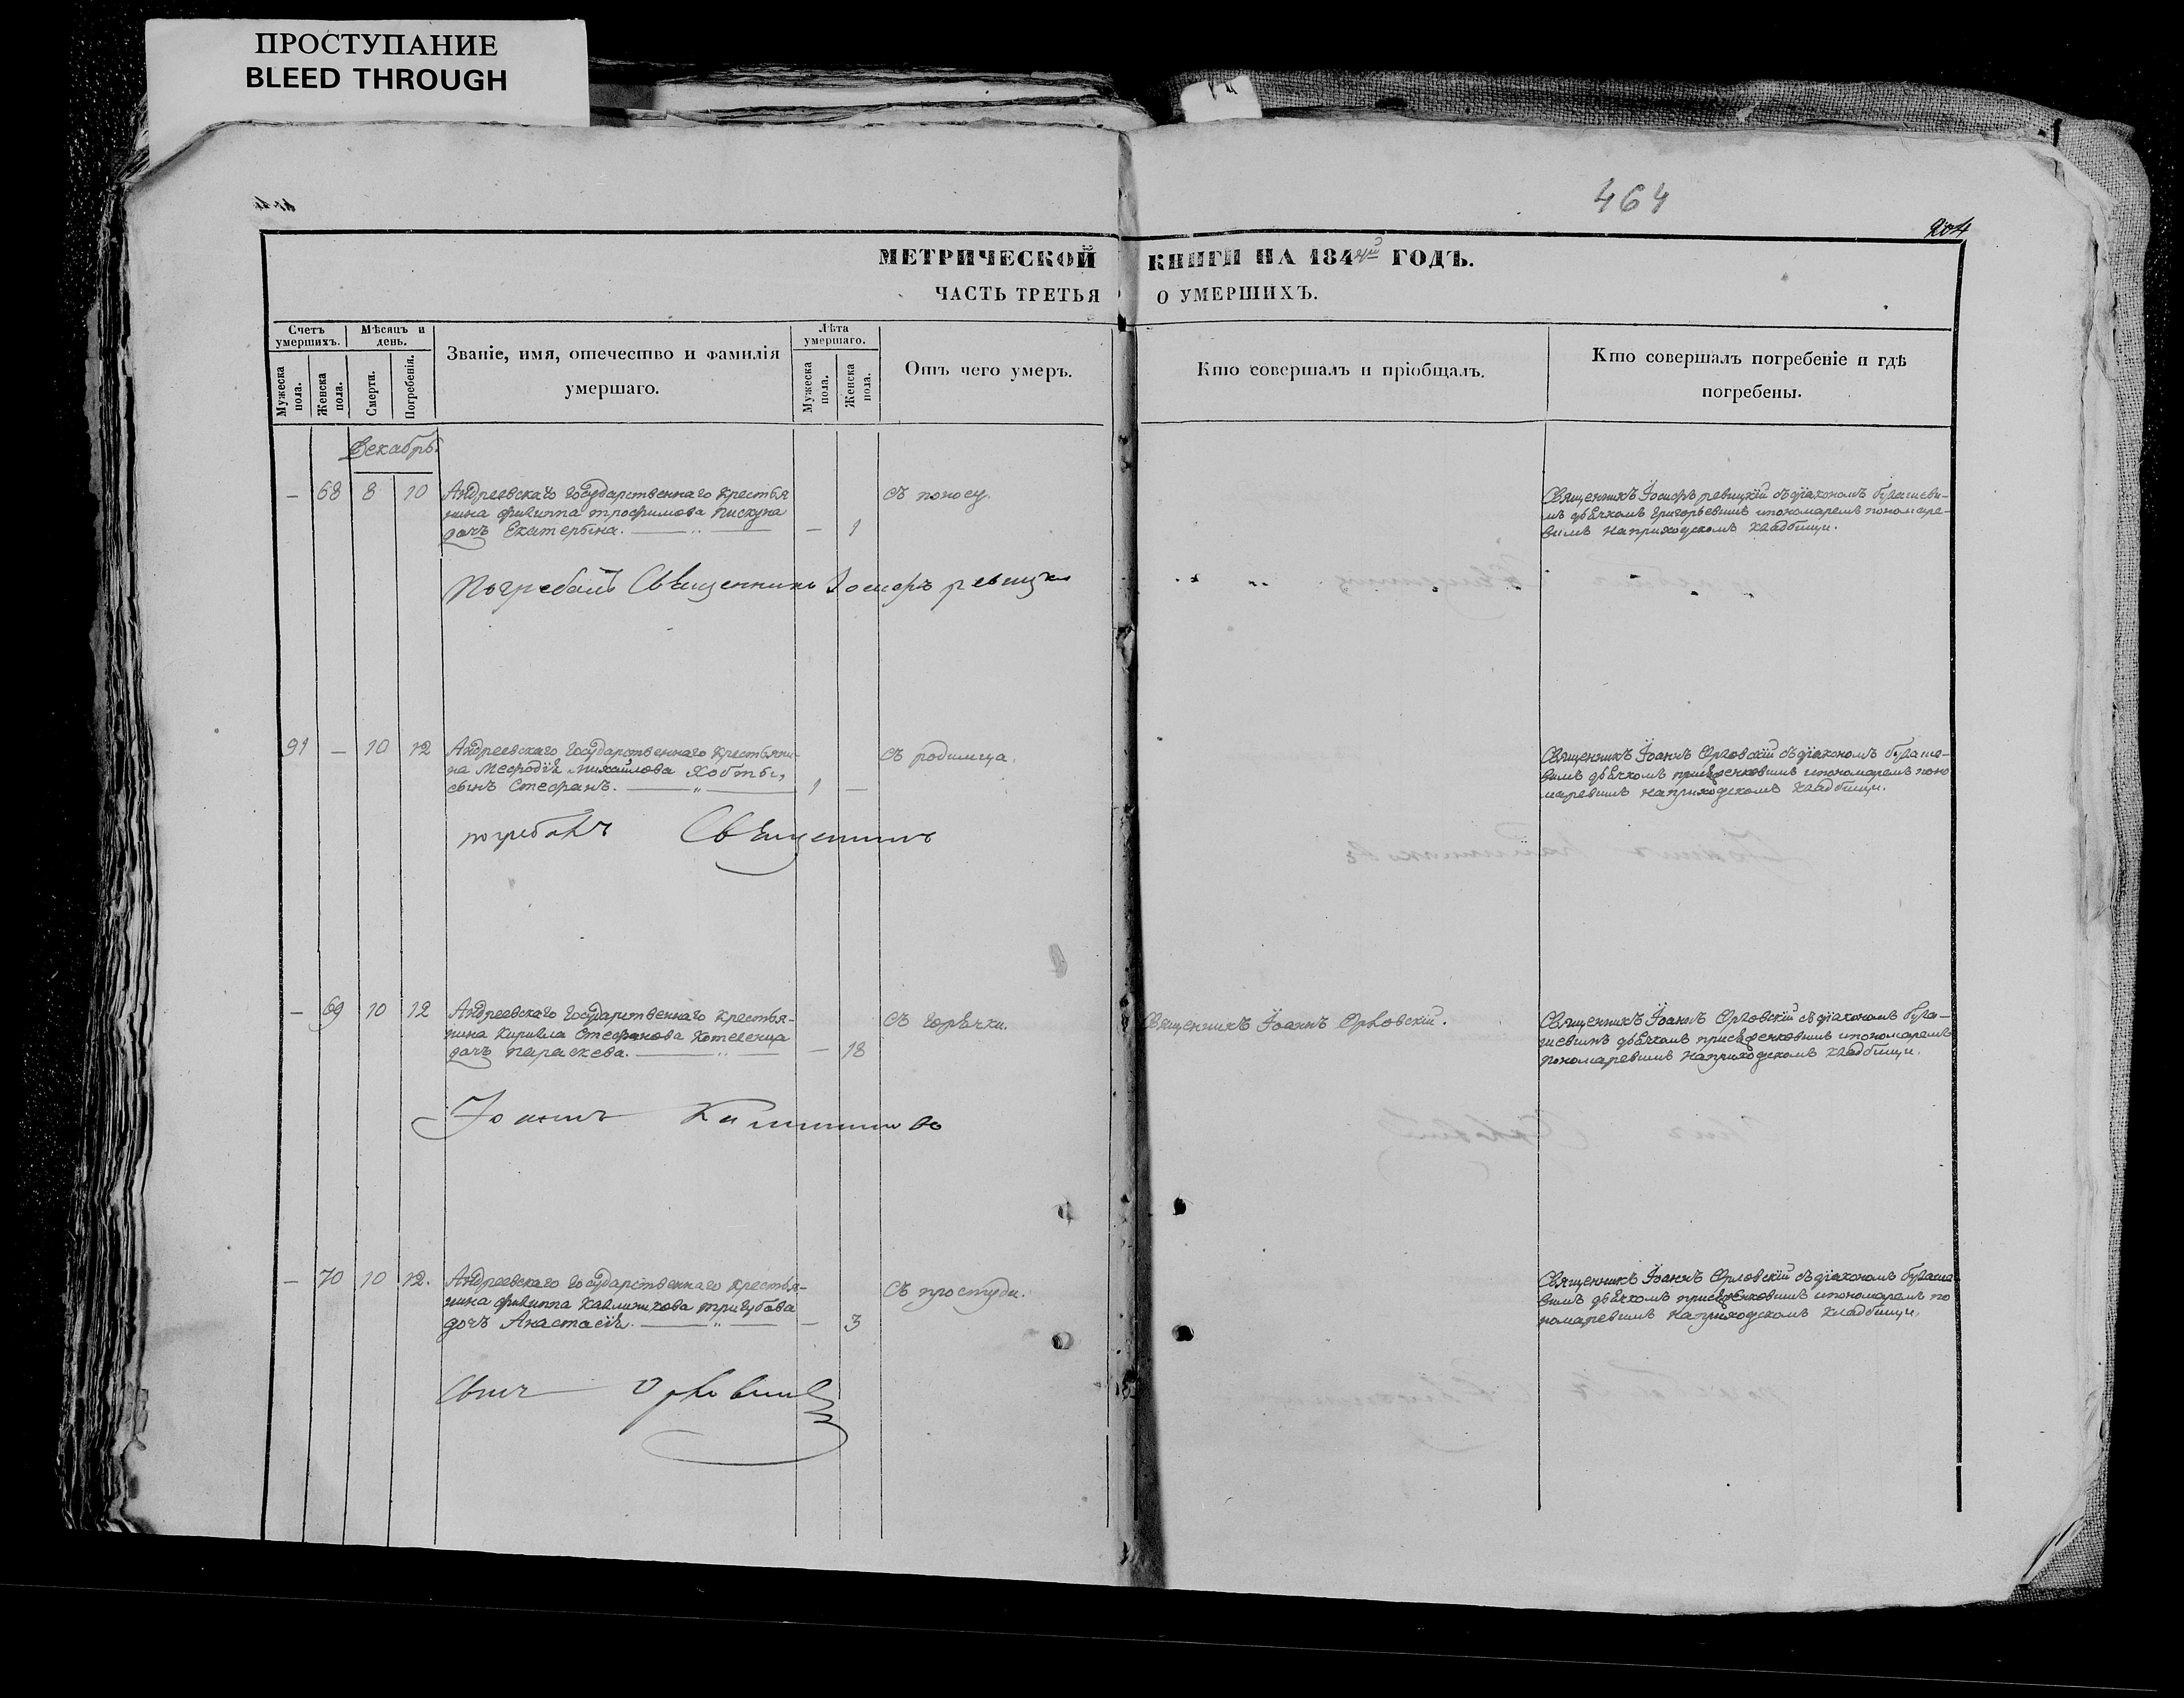 ПРОСТУПАНИЕ
BLEED THROUGH
464
204
МЕТРИЧЕСКОЙ КНИГИ НА 1844й ГОДЪ.
ЧАСТЬ ТРЕТЬЯ О УМЕРШИХЪ.
Счетъ умершихъ.
Мужеска пола.
Женска пола.
Мѣсяцъ и день.
Смерти.
Погребенія.
Званіе, имя, отечество и фамилія умершаго.
Лѣта умершаго.
Мужеска пола.
Женска пола.
Отъ чего умеръ.
Кто совершалъ и пріобщалъ.
Кто совершалъ погребеніе и гдѣ погребены.
Декабрь
— 68 8 10 Андреевскаго Государственнаго крестья
нина Филиппа Трофимова Пискуна
дочь Екатерина. — 1
съ поносу.
Священникъ Іосифъ Ревицкій съ діякономъ Бугашеви-
мъ дьячкомъ Григорьевимъ и пономаремъ Пономаре-
вимъ на приходскомъ кладбищи.
Погребалъ Священникъ Іосифъ Ревицкій
91 — 10 12 Андреевскаго Государственнаго крестьяни-
на Мефодія Михайлова Хобты,
сынъ Стефанъ. 1 —
съ родимца.
Священникъ Іоаннъ Орловскій съ діякономъ Бугаше-
вимъ дьячкомъ и пономаремъ Поно
маревимъ на приходскомъ кладбищи.
погребалъ Священникъ
— 69 10 12 Андреевскаго Государственнаго крестья-
нина Кирилла Стефанова Котеленца
дочь Параскева. — 18
съ горячки.
Священникъ Іоаннъ Орловскій.
Священникъ Іоаннъ Орловскій съ діякономъ Буга-
шевимъ дьячкомъ и пономаремъ
Пономаревимъ на приходскомъ кладбищи.
Іоаннъ
— 70 10 12. Андреевскаго Государственнаго крестья-
нина Филиппа Каллиникова Тригубова
дочь Анастасія. — 3
съ простуди.
Священникъ Іоаннъ Орловскій съ діякономъ Бугаше
вимъ дьячкомъ и пономаремъ По
номаревимъ на приходскомъ кладбищи.
Орловскій